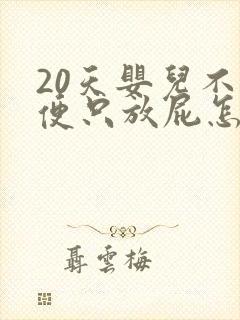 20天嬰兒不
便只放屁怎
聶雲梅